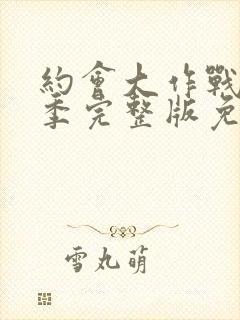 約會大作戰
季完整版免
雪丸萌